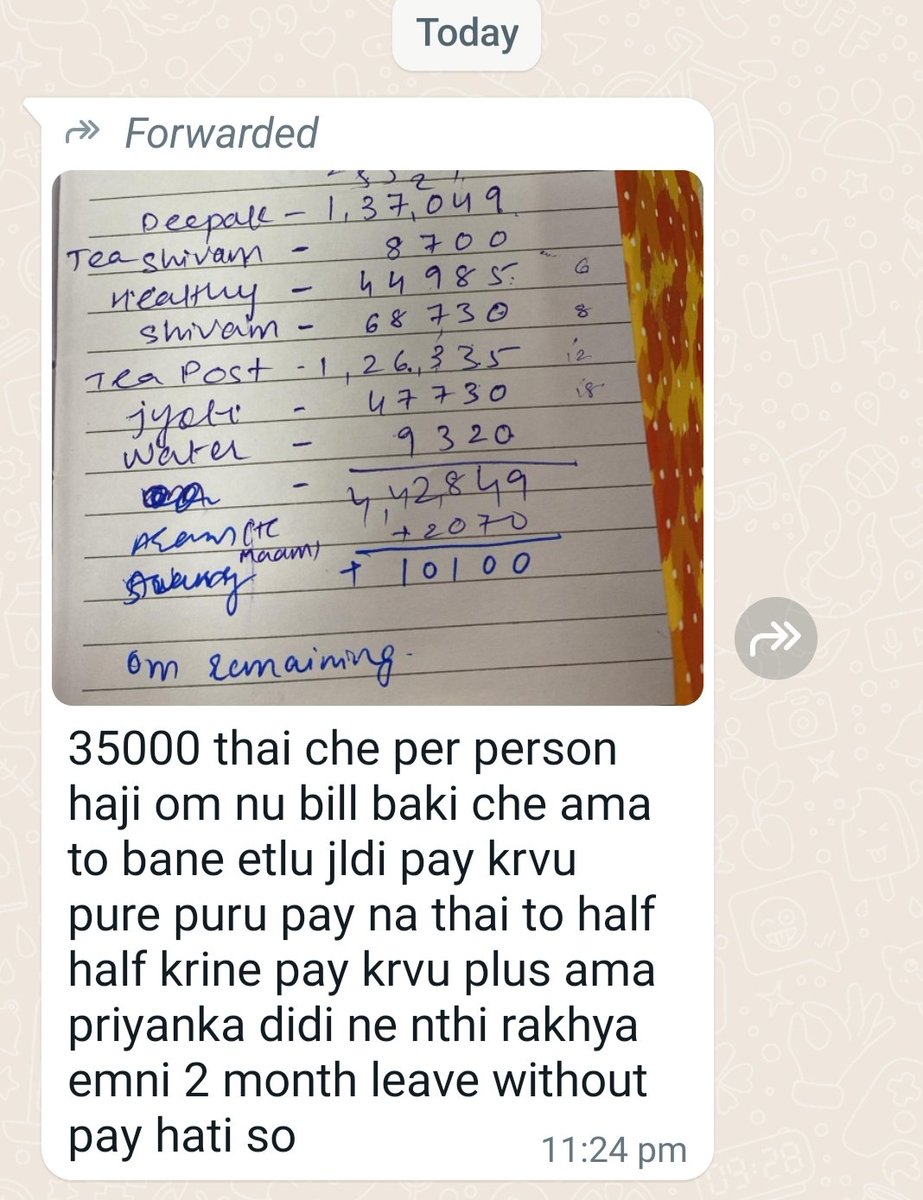 Today
Forwarded
Deepak - 1,37,049
Tea shivam - 8700
Healthy - 44985. 6
shivam - 68730 8
Tea Post - 1,26,335 12
jyoti - 47730 18
water - 9320
- 4,42,849
(CTC +2070
Maam)
+ 10100
Om remaining.
35000 thai che per person
haji om nu bill baki che ama
to bane etlu jldi pay krvu
pure puru pay na thai to half
half krine pay krvu plus ama
priyanka didi ne nthi rakhya
emni 2 month leave without
pay hati so
11:24 pm